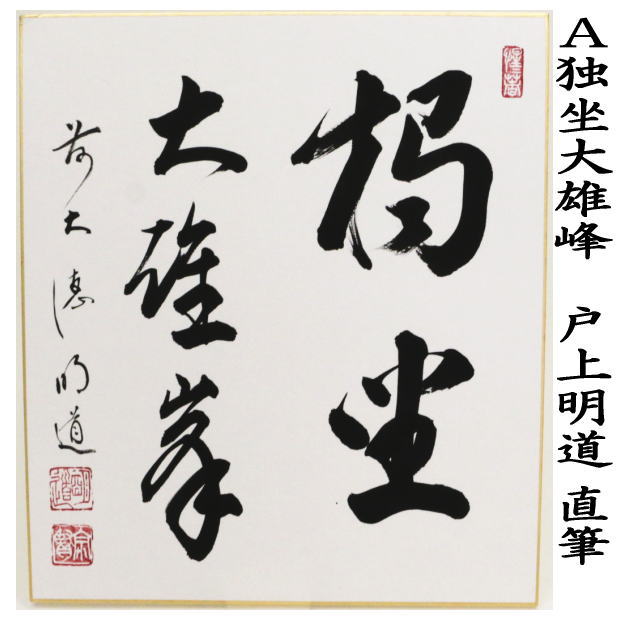 A独坐大雄峰 戸上明道 直筆
獨坐
大雄峯
前大徳明道